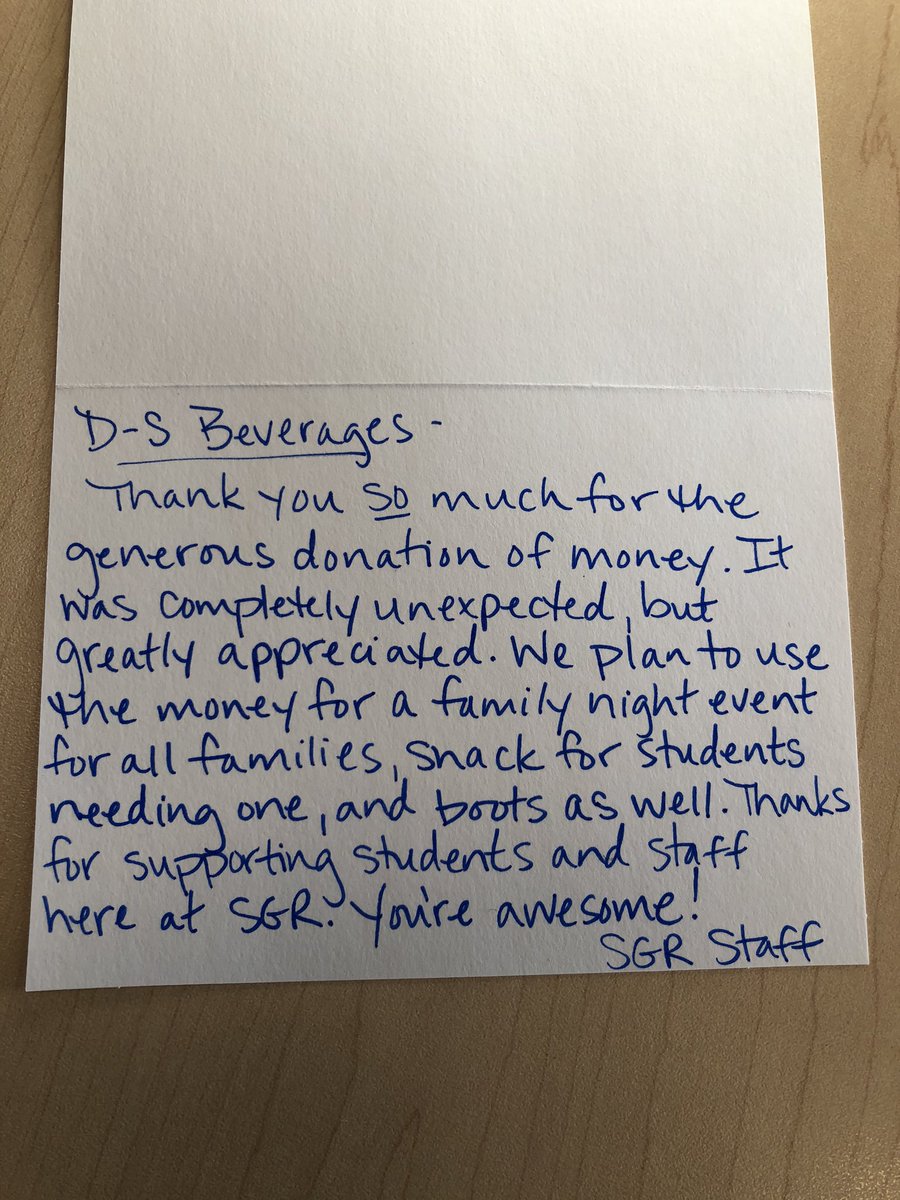 D-S Beverages -
Thank you so much for the
generous donation of money. It
was completely unexpected, but
greatly appreciated. We plan to use
the money for a family night event
for all families, snack for students
needing one, and boots as well. Thanks
for supporting students and staff
here at SGR. You're awesome!
SGR Staff